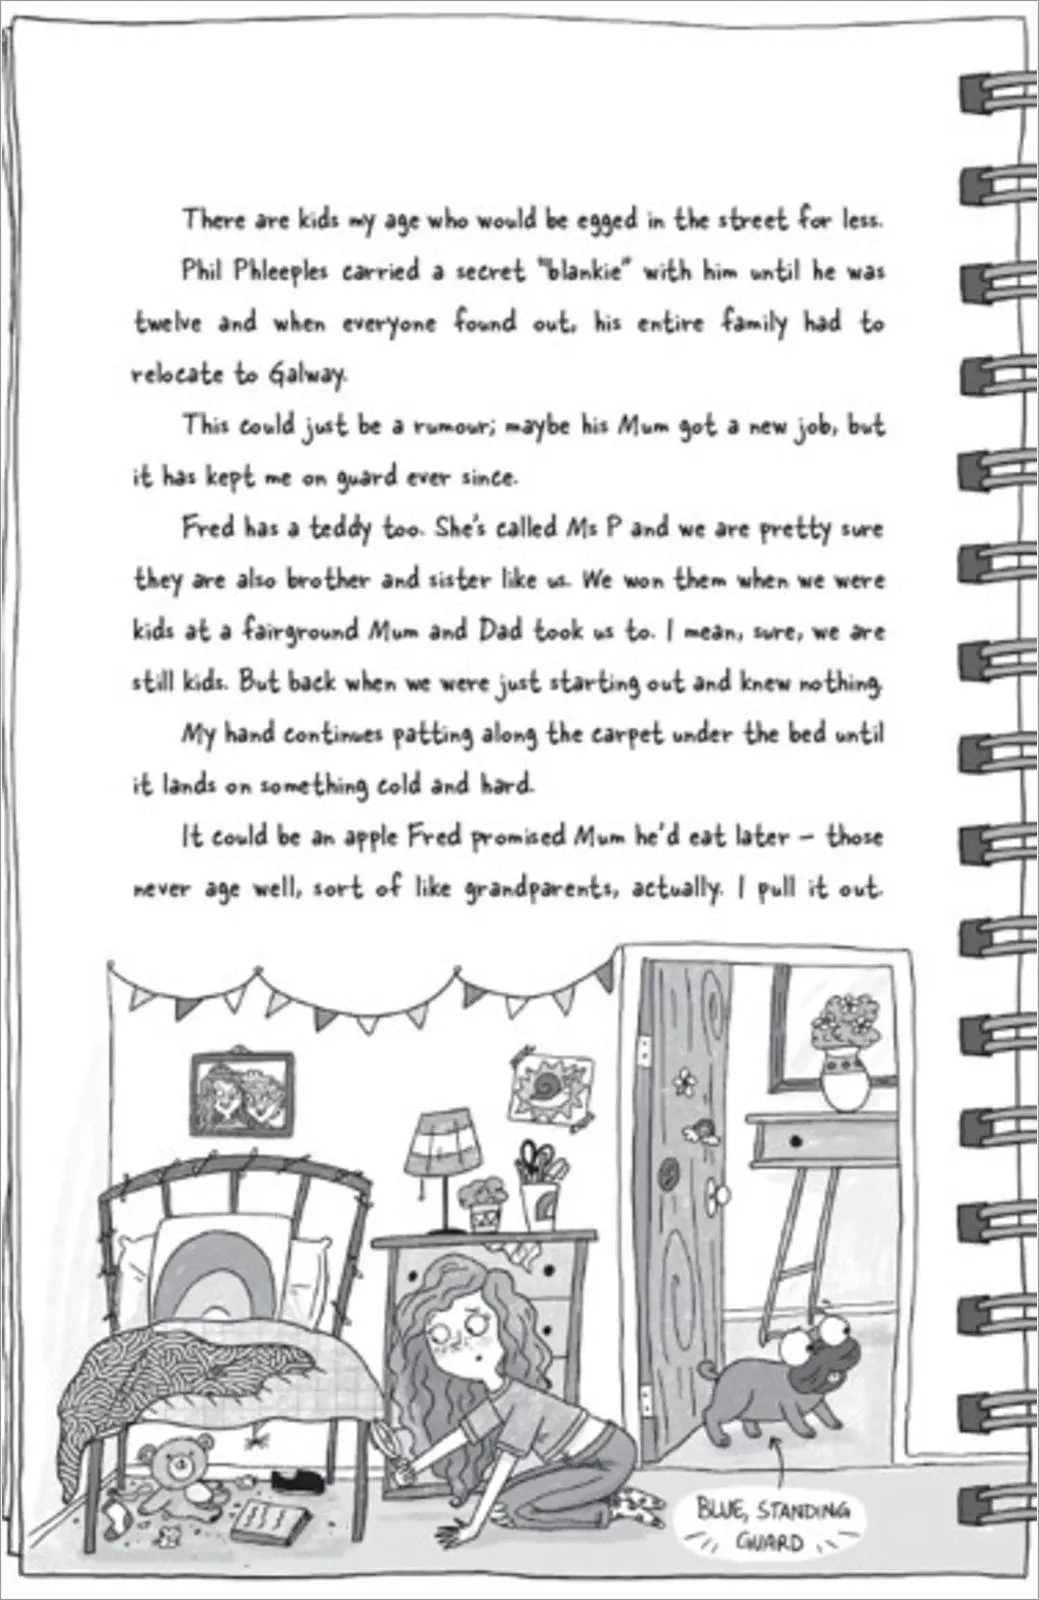 There are kids my age who would be egged in the street for less.
Phil Phleeples carried a secret "blankie" with him until he was
twelve and when everyone found out, his entire family had to
relocate to Galway.
This could just be a rumour; maybe his Mum got a new job, but
it has kept me on guard ever since.
Fred has a teddy too. She's called Ms P and we are pretty sure
they are also brother and sister like us. We won them when we were
kids at a fairground Mum and Dad took us to. I mean, sure, we are
still kids. But back when we were just starting out and knew nothing.
My hand continues patting along the carpet under the bed until
it lands on something cold and hard.
It could be an apple Fred promised Mum he'd eat later – those
never age well, sort of like grandparents, actually. I pull it out.
BLUE, STANDING
GUARD